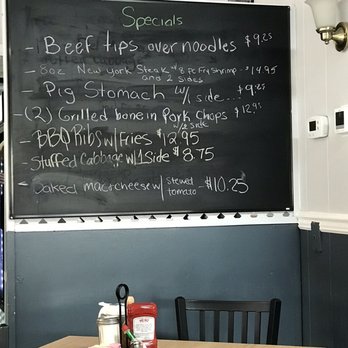 Specials
- Beef tips over noodles $9.25
- 8oz New York Steak w/ 8 pc Fry Shrimp - $14.95
and 2 sides
- Pig Stomach w/1 side... $9.25
- (2) Grilled bone in Pork Chops $12.95
w/2 side
- BBQ Ribs w/Fries $12.95
- Stuffed Cabbage w/1 Side $8.75
- Baked mac+cheese w/ stewed
tomato - $10.25